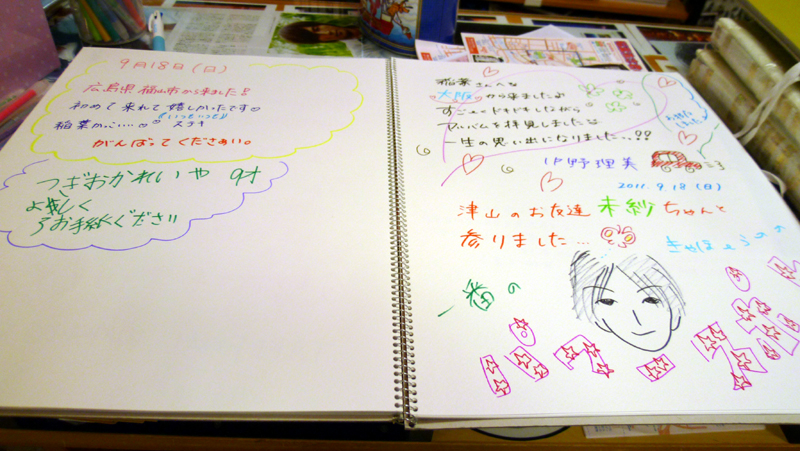 9月18日(日)
広島県福山市から来ました!
初めて来れて嬉しかったです
いつもいつも
稲葉さん……ステキ
がんばってくださぁい。
つぎおかれいや 9才
よろしく
お手紙ください
稲葉さんへ
大阪から来ました♪
すごーくドキドキしながら
アルバムを拝見しました
一生の思い出になりましたっ!!
伊野理美
2011.9.18(日)
津山のお友達 未紗ちゃんと
参りました…
一番の
パワースポ